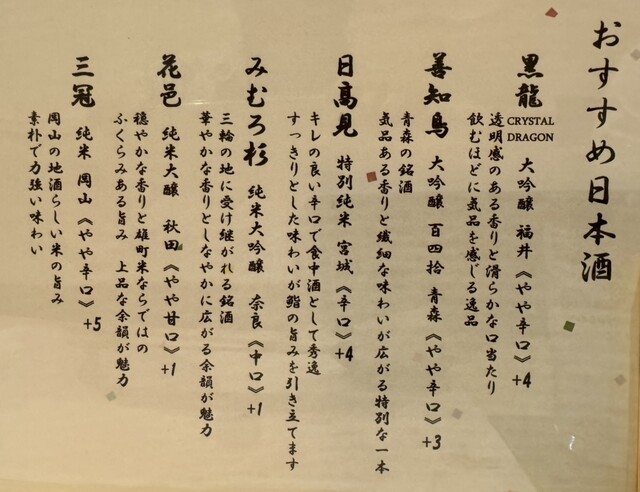 おすすめ日本酒
黒龍 CRYSTAL DRAGON 大吟醸 福井 《やや辛口》 +4
透明感のある香りと滑らかな口当たり
飲むほどに気品を感じる逸品
善知鳥 大吟醸 百四拾 青森 《やや辛口》 +3
青森の銘酒
気品ある香りと繊細な味わいが広がる特別な一本
日高見 特別純米 宮城 《辛口》 +4
キレの良い辛口で食中酒として秀逸
すっきりとした味わいが鮨の旨みを引き立てます
みむろ杉 純米大吟醸 奈良 《中口》 +1
三輪の地に受け継がれる銘酒
華やかな香りとしなやかに広がる余韻が魅力
花邑 純米大醸 秋田 《やや甘口》 +1
穏やかな香りと雄町米ならではの
ふくらみある旨み 上品な余韻が魅力
三冠 純米 岡山 《やや辛口》 +5
岡山の地酒らしい米の旨み
素朴で力強い味わい